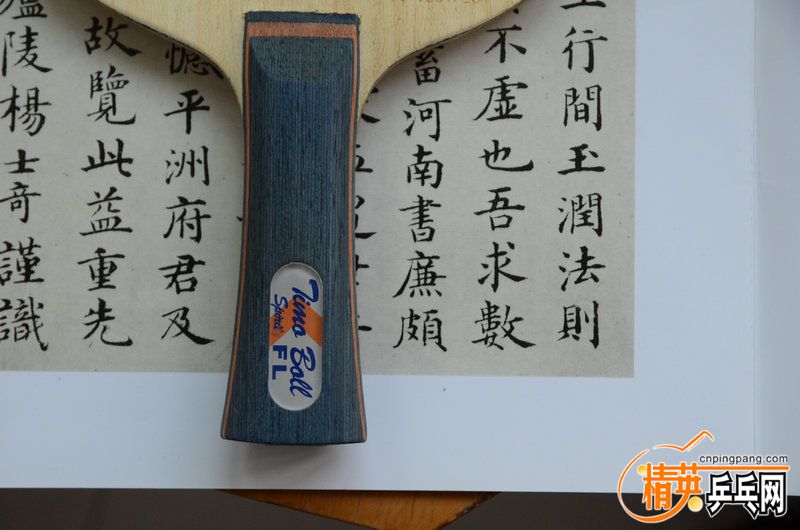 行間玉潤法則
不虛也吾求數
河南書廉頗
憶平洲府君及
故覽此益重先
陵楊士奇謹識
Timo Boll
Spirit
FL
cnpingpang.com
精英乒乓网